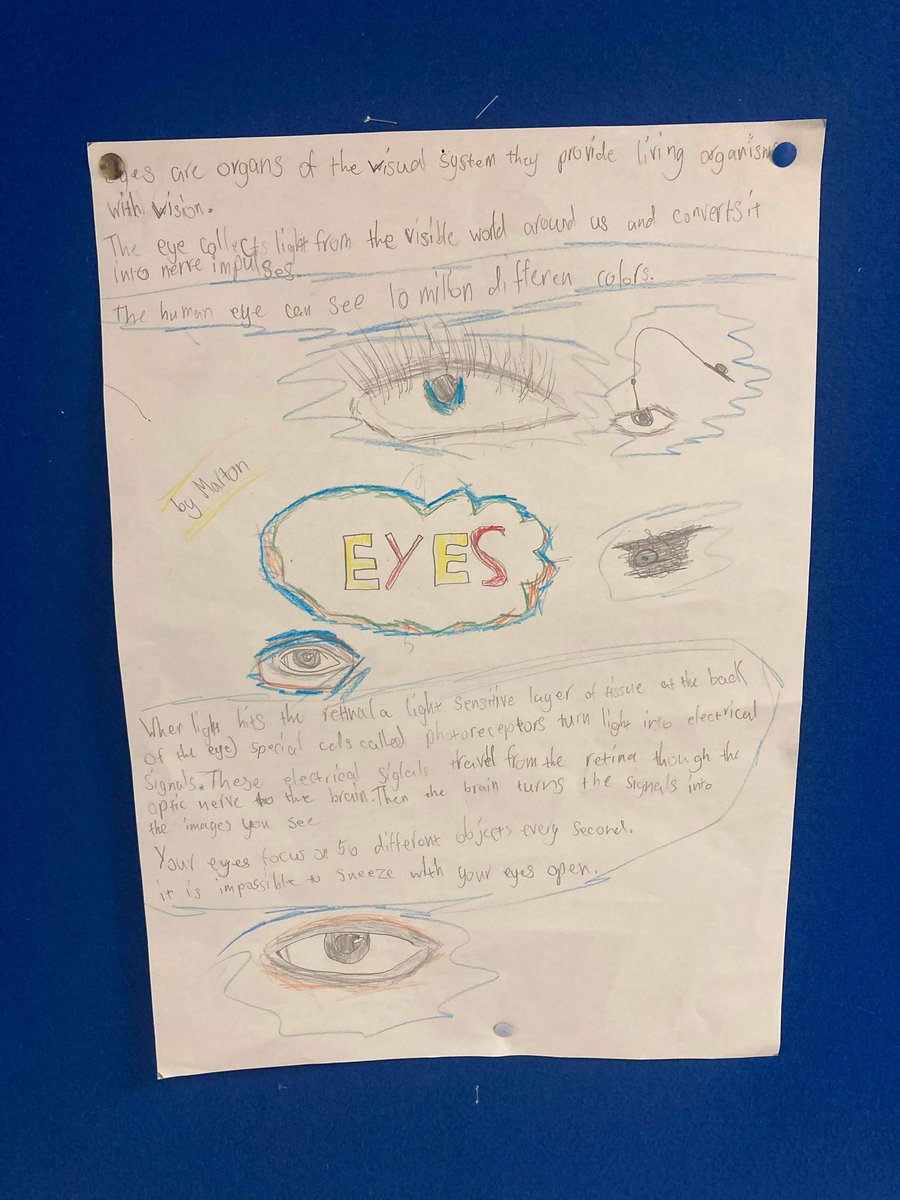 eyes are organs of the visual system they provide living organisms
with vision.
The eye collects light from the visible world around us and converts it
into nerve impulses.
The human eye can see 10 millon differen colors.
by Malton
EYES
When light hits the retina(a light sensitive layer of tissue at the back
of the eye) special cels called photoreceptors turn light into electrical
signals. These electrical siglals travel from the retina though the
optic nerve to the brain. Then the brain turns the signals into
the images you see
Your eyes focus on 50 different objects every second.
it is impossible to sneeze with your eyes open.